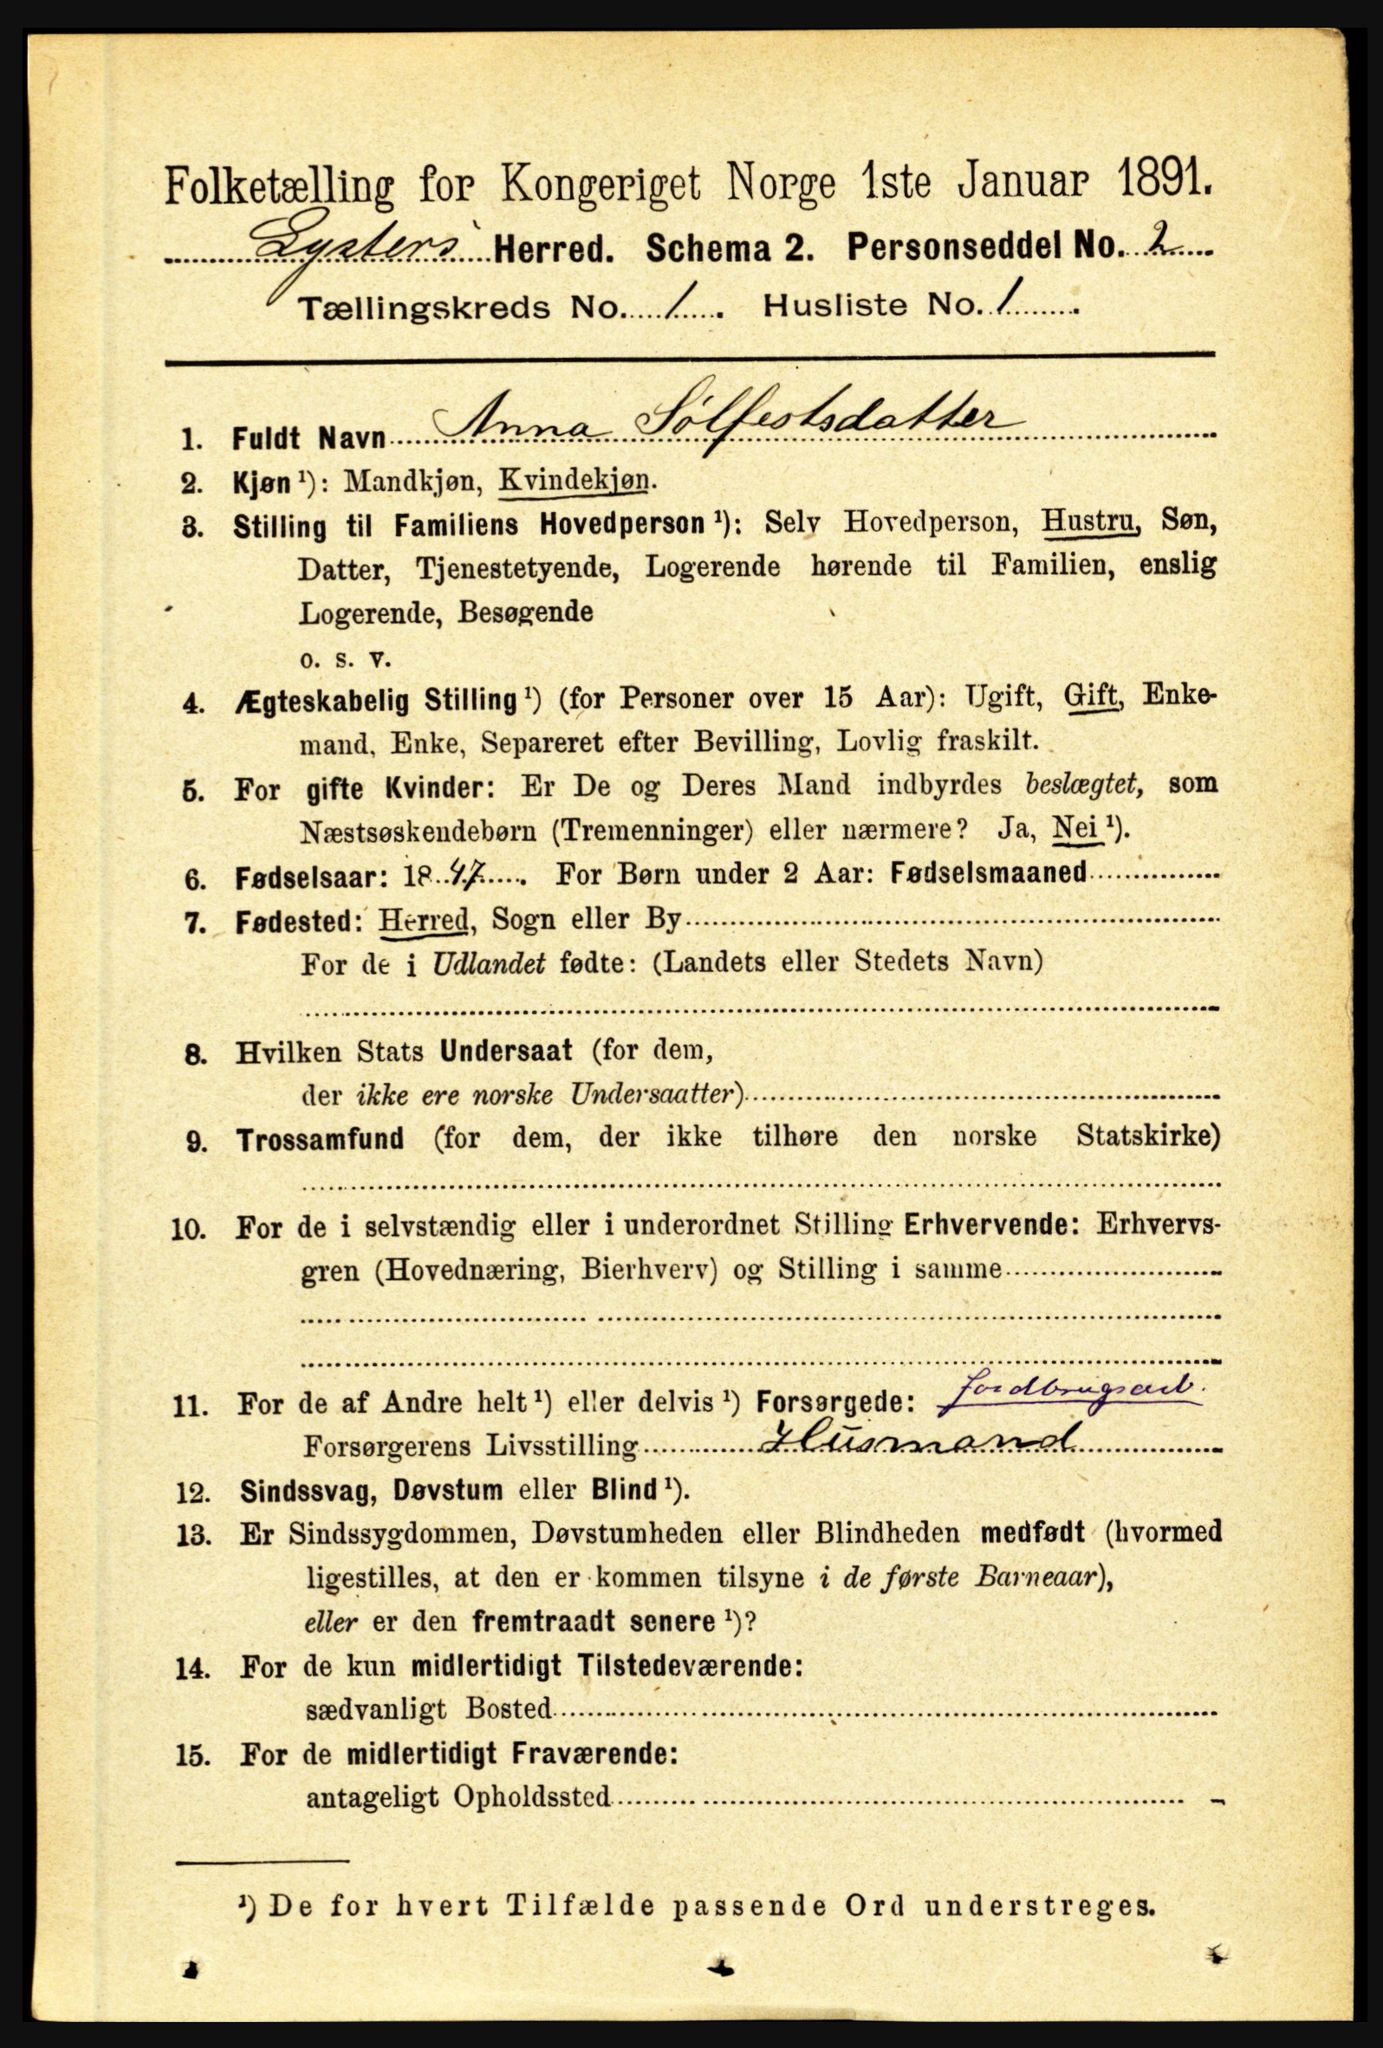 Folketælling for Kongeriget Norge 1ste Januar 1891.
Lysters Herred. Schema 2. Personseddel No. 2
Tællingskreds No. 1. Husliste No. 1
1. Fuldt Navn Anna Sølfestsdatter
2. Kjøn ¹): Mandkjøn, Kvindekjøn.
3. Stilling til Familiens Hovedperson ¹): Selv Hovedperson, Hustru, Søn,
Datter, Tjenestetyende, Logerende hørende til Familien, enslig
Logerende, Besøgende
o. s. v.
4. Ægteskabelig Stilling ¹) (for Personer over 15 Aar): Ugift, Gift, Enke-
mand, Enke, Separeret efter Bevilling, Lovlig fraskilt.
5. For gifte Kvinder: Er De og Deres Mand indbyrdes beslægtet, som
Næstsøskendebørn (Tremenninger) eller nærmere? Ja, Nei ¹).
6. Fødselsaar: 1847. For Børn under 2 Aar: Fødselsmaaned
7. Fødested: Herred, Sogn eller By
For de i Udlandet fødte: (Landets eller Stedets Navn)
8. Hvilken Stats Undersaat (for dem,
der ikke ere norske Undersaatter)
9. Trossamfund (for dem, der ikke tilhøre den norske Statskirke)
10. For de i selvstændig eller i underordnet Stilling Erhvervende: Erhvervs-
gren (Hovednæring, Bierhverv) og Stilling i samme
11. For de af Andre helt ¹) eller delvis ¹) Forsørgede: Jordbrugsarb.
Forsørgerens Livsstilling Husmand
12. Sindssvag, Døvstum eller Blind ¹).
13. Er Sindssygdommen, Døvstumheden eller Blindheden medfødt (hvormed
ligestilles, at den er kommen tilsyne i de første Barneaar),
eller er den fremtraadt senere ¹)?
14. For de kun midlertidigt Tilstedeværende:
sædvanligt Bosted
15. For de midlertidigt Fraværende:
antageligt Opholdssted
¹) De for hvert Tilfælde passende Ord understreges.